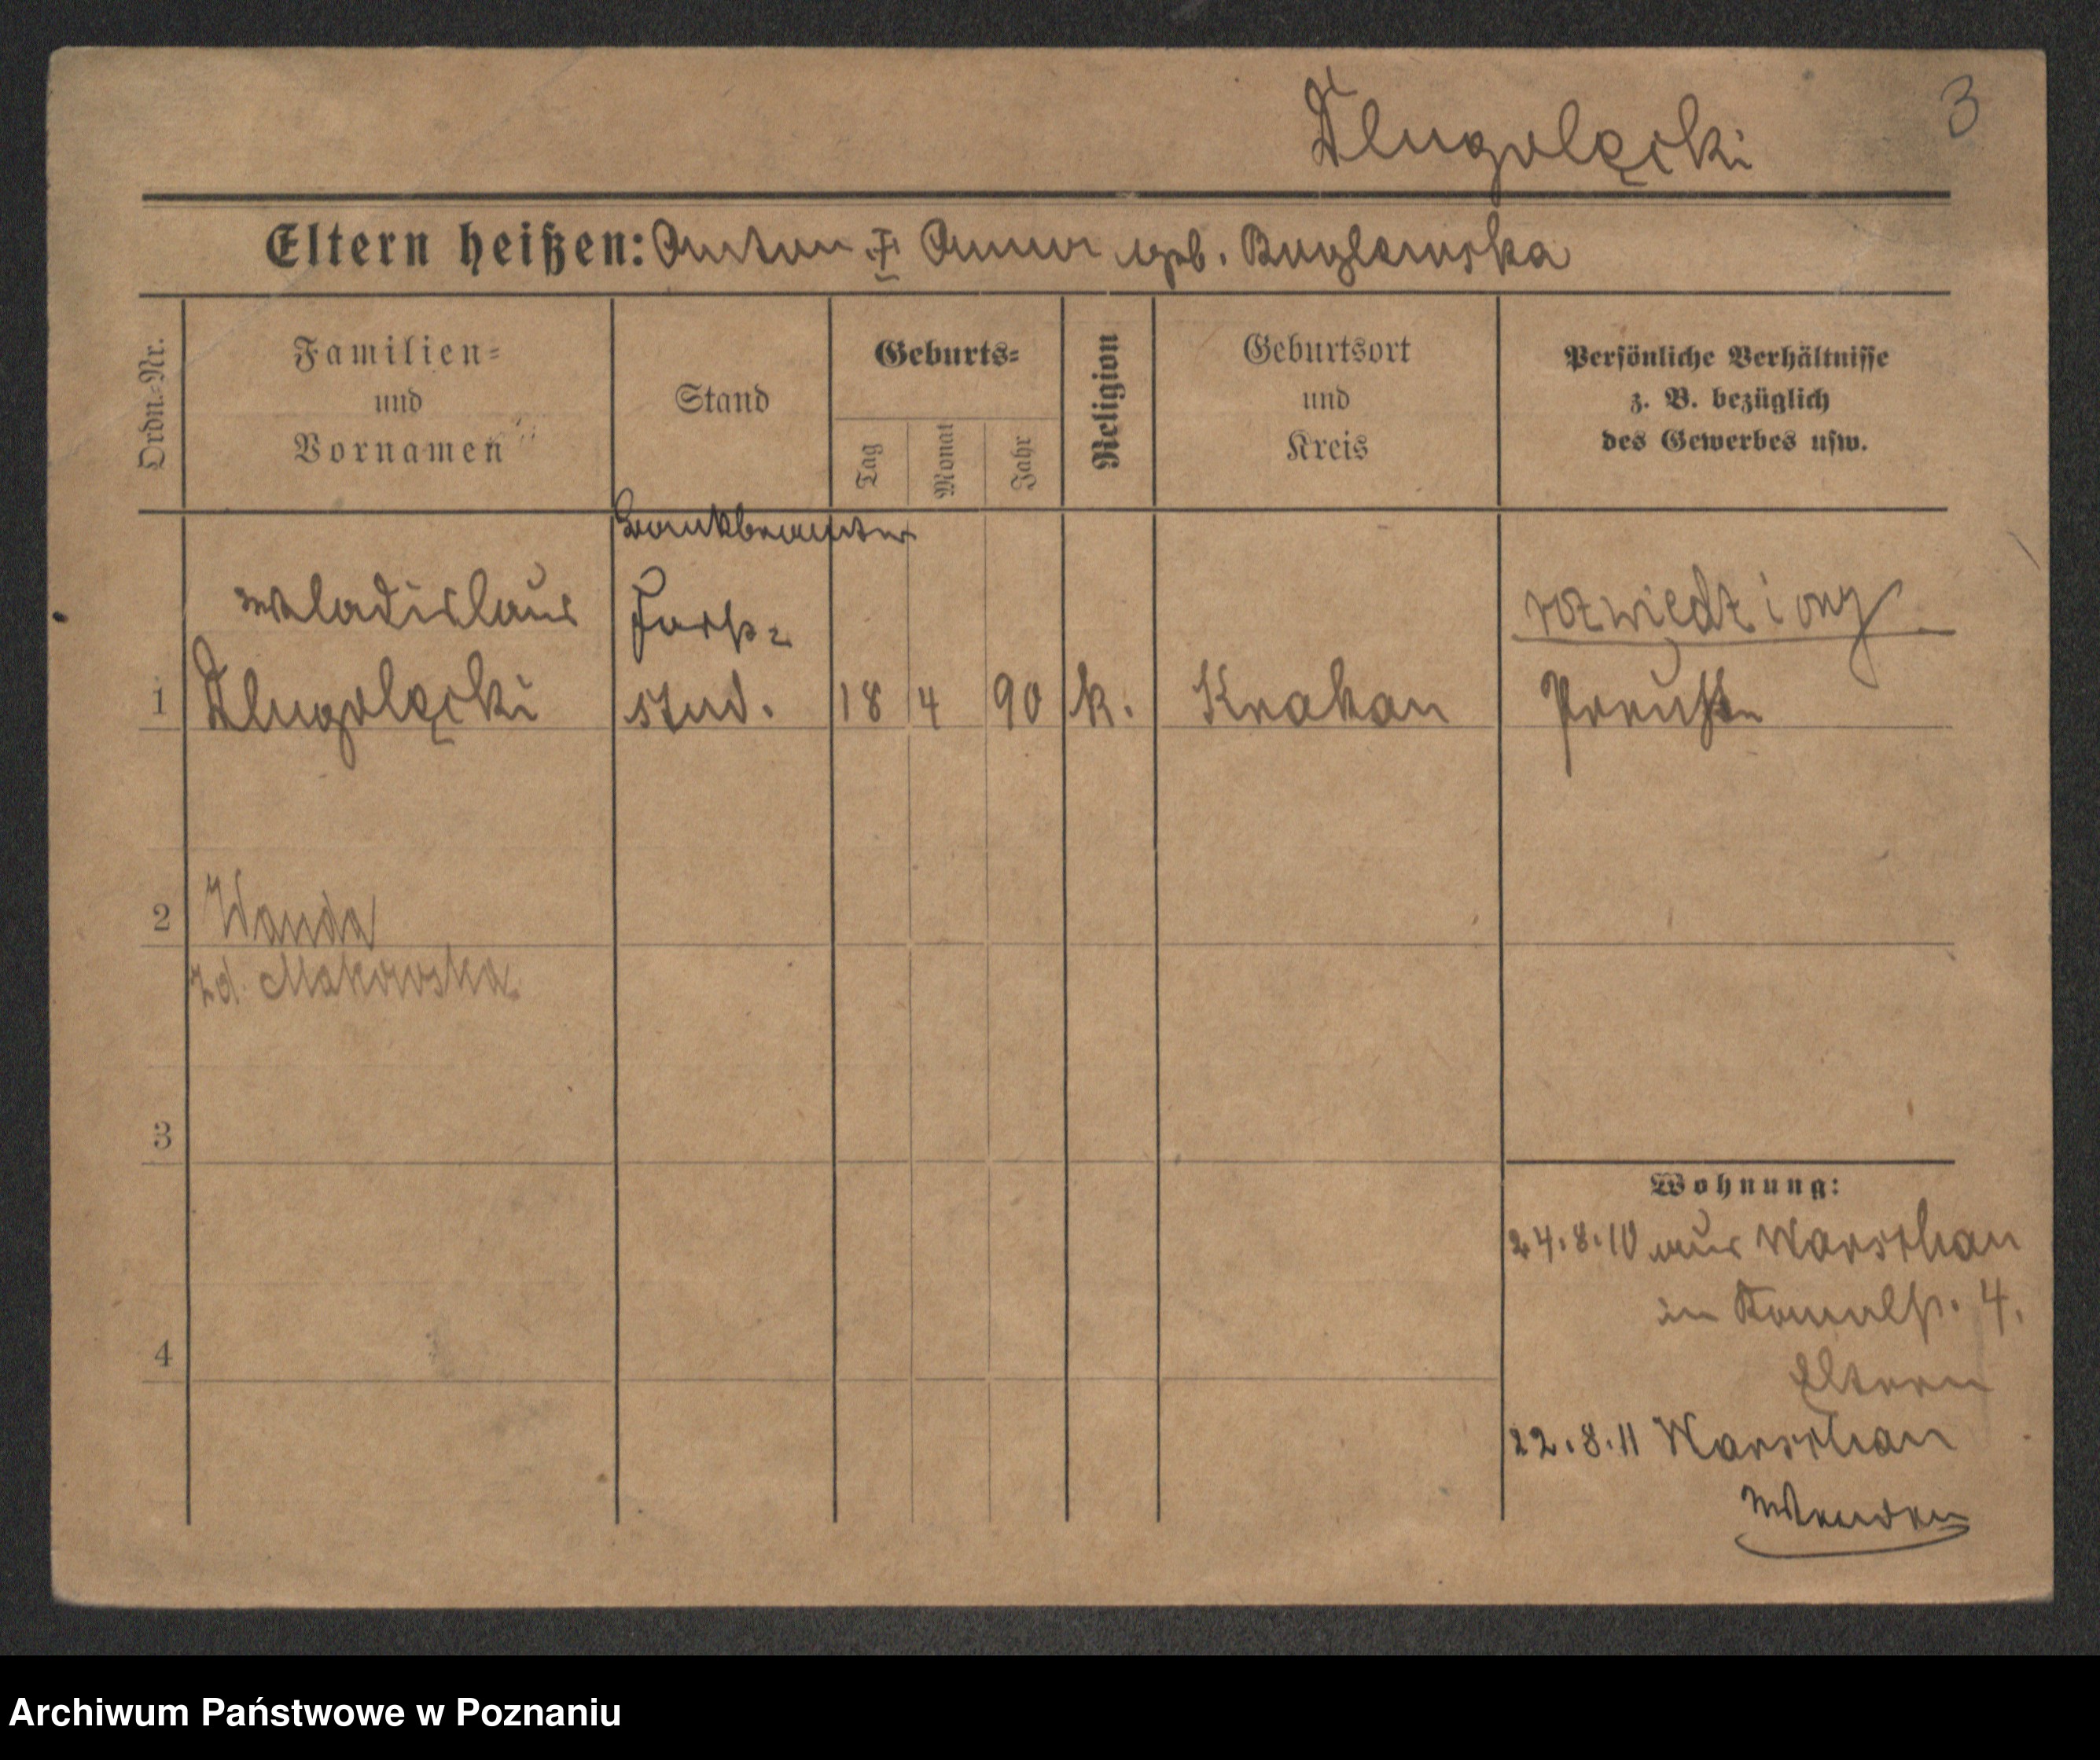 Dlugolęcki 3
Eltern heißen: Anton u. Anna geb. Buglewska
Ordn.-Nr.
Familien-
und
Vornamen
Stand
Geburts-
Tag
Monat
Jahr
Religion
Geburtsort
und
Kreis
Persönliche Verhältnisse
z. B. bezüglich
des Gewerbes usw.
Bankbeamter
Wladislaus Forst- rozwiedziony
1 Dlugolęcki stud. 18 4 90 k. Krakau Preuße
2 Wanda
zd. Makowska
3
Wohnung:
24.8.10 aus Warschau
in 4.
Eltern
4
22.8.11 Warschau
Archiwum Państwowe w Poznaniu